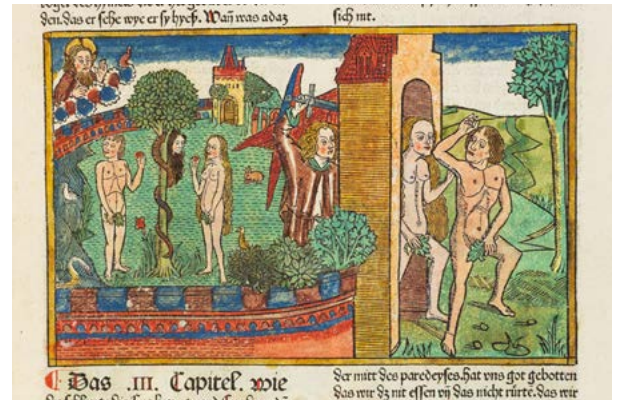 den.das er sehe wye er sy hyeß. Wañ was adaʒ
sich nit.
Das .III. Capitel. wie
der mitt des paredeyses.hat vns got gebotten
das wir dʒ nit essen vñ das nicht rürte.das wir